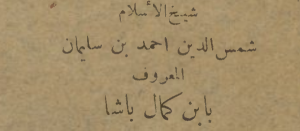 شيخ الأسلام
شمس الدين احمد بن سليمان
المعروف
بابن كمال باشا